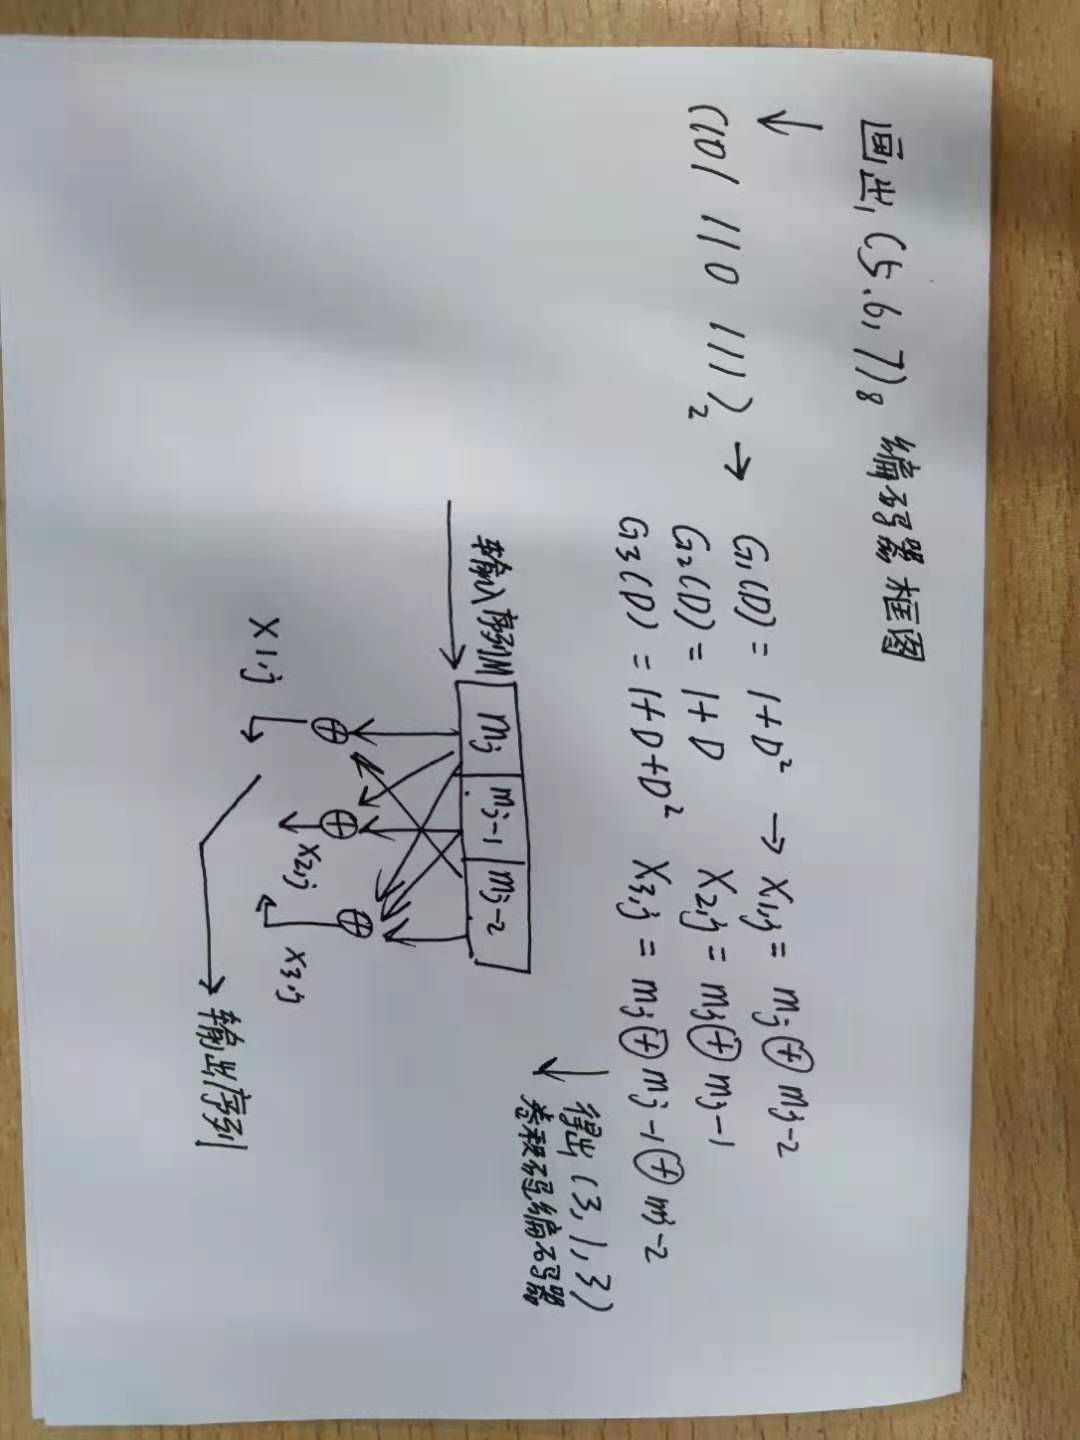 画出(5.6,7)₈编码器框图
↓
(101 110 111)₂ → G₁(D) = 1+D² → X₁,j = mj⊕mj-2
G₂(D) = 1+D X₂,j = mj⊕mj-1
G₃(D) = 1+D+D² X₃,j = mj⊕mj-1⊕mj-2
↓ 得出(3,1,3)
卷积码编码器
输入序列M
mj mj-1 mj-2
⊕ ⊕ ⊕
X1,j X2,j X3,j
输出序列